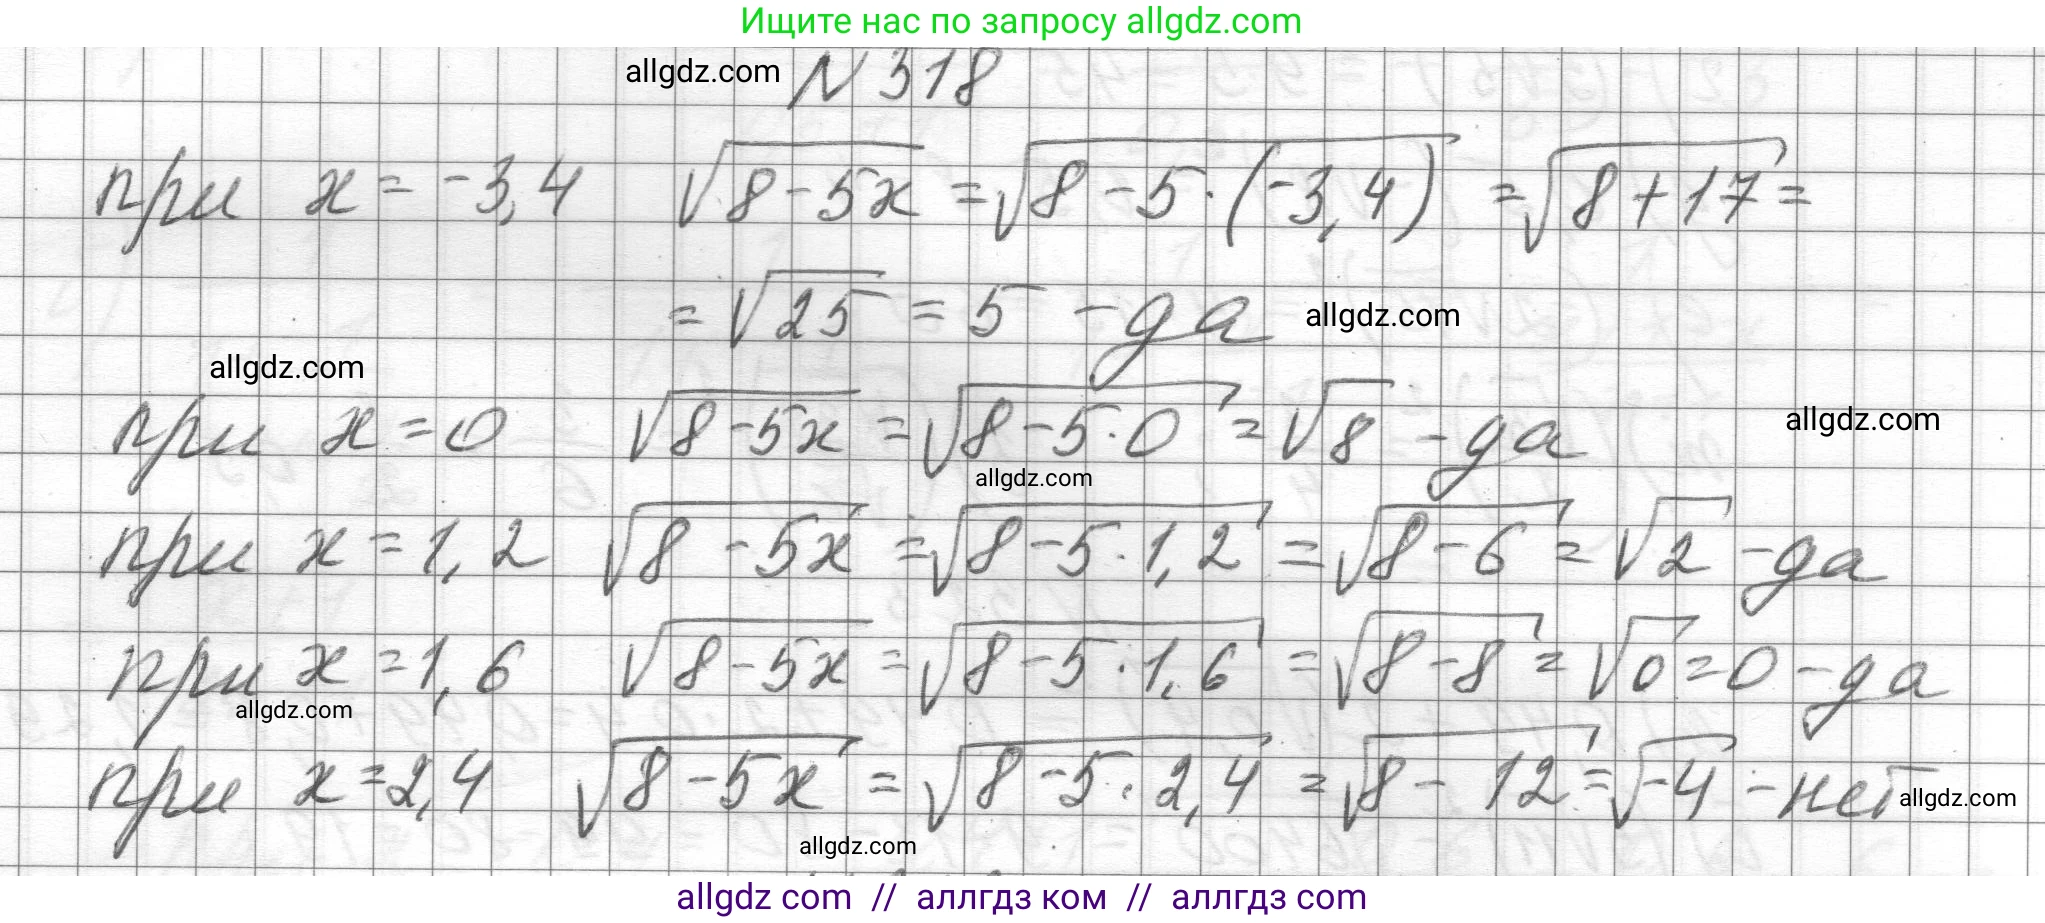 Ищите нас по запросу allgdz.com
allgdz.com N 318
при x = -3,4 √(8-5x) = √(8-5·(-3,4)) = √(8+17) =
= √25 = 5 - да allgdz.com
allgdz.com
при x = 0 √(8-5x) = √(8-5·0) = √8 - да allgdz.com
allgdz.com
при x = 1,2 √(8-5x) = √(8-5·1,2) = √(8-6) = √2 - да
при x = 1,6 √(8-5x) = √(8-5·1,6) = √(8-8) = √0 = 0 - да
allgdz.com
при x = 2,4 √(8-5x) = √(8-5·2,4) = √(8-12) = √-4 - нет allgdz.com
allgdz.com
allgdz com // аллгдз ком // аллгдз com